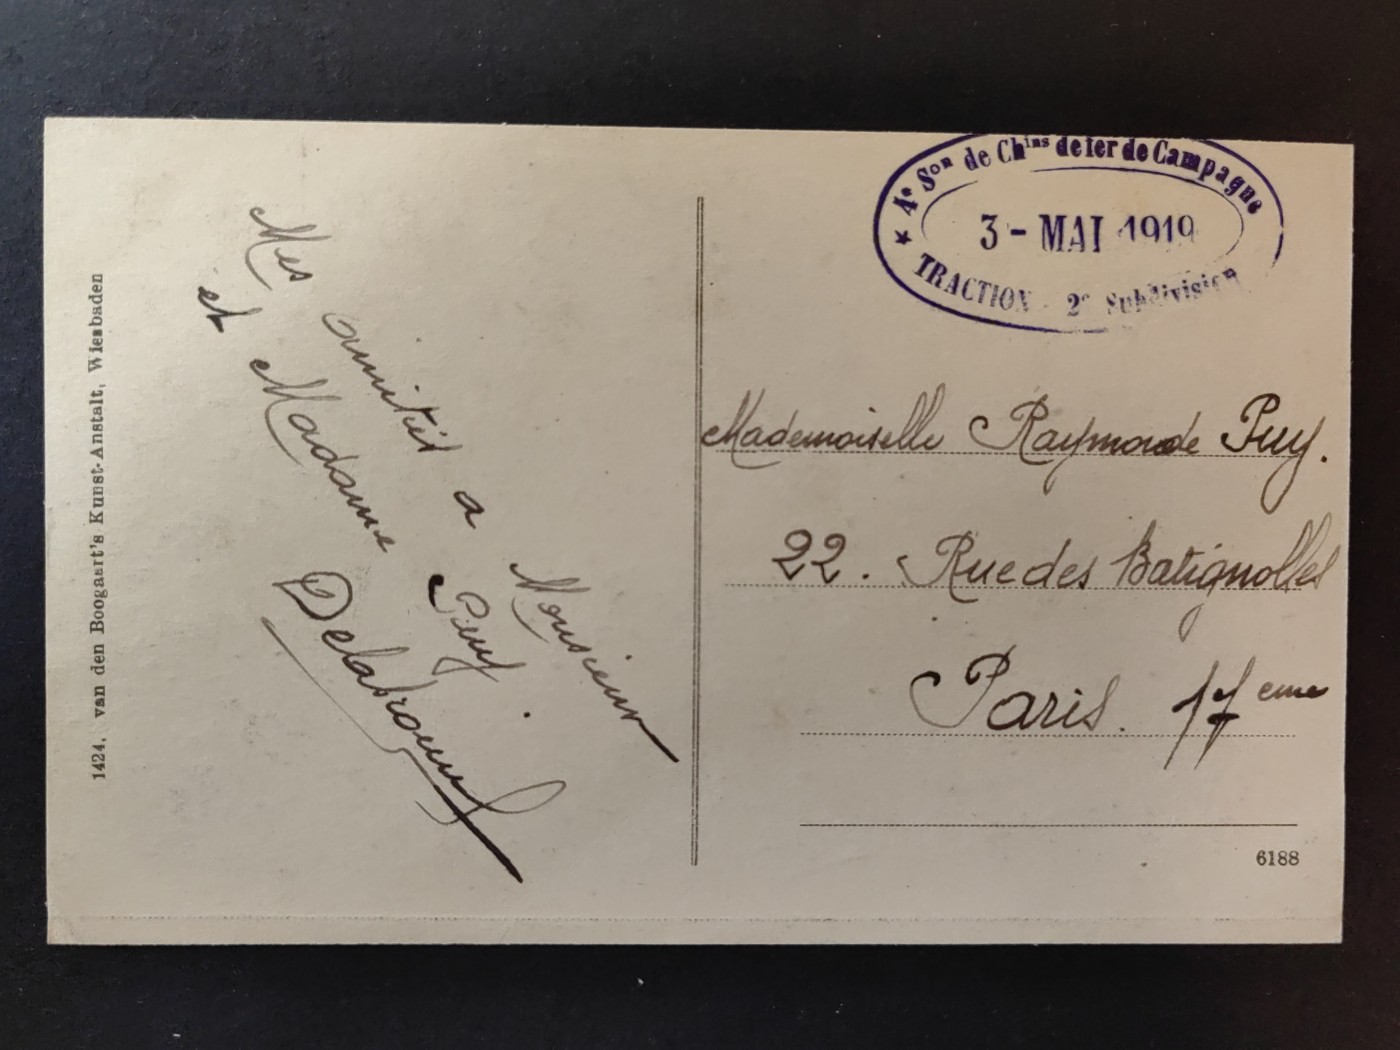 1424. van den Boogaart's Kunst-Anstalt, Wiesbaden
Mes amitiés a Monsieur
et Madame Puy.
★ 4e Son de Chins de fer de Campagne
3 - MAI 1919
TRACTION - 2e Subdivision
Mademoiselle Raymonde Puy.
22. Rue des Batignolles
Paris. 17eme
6188